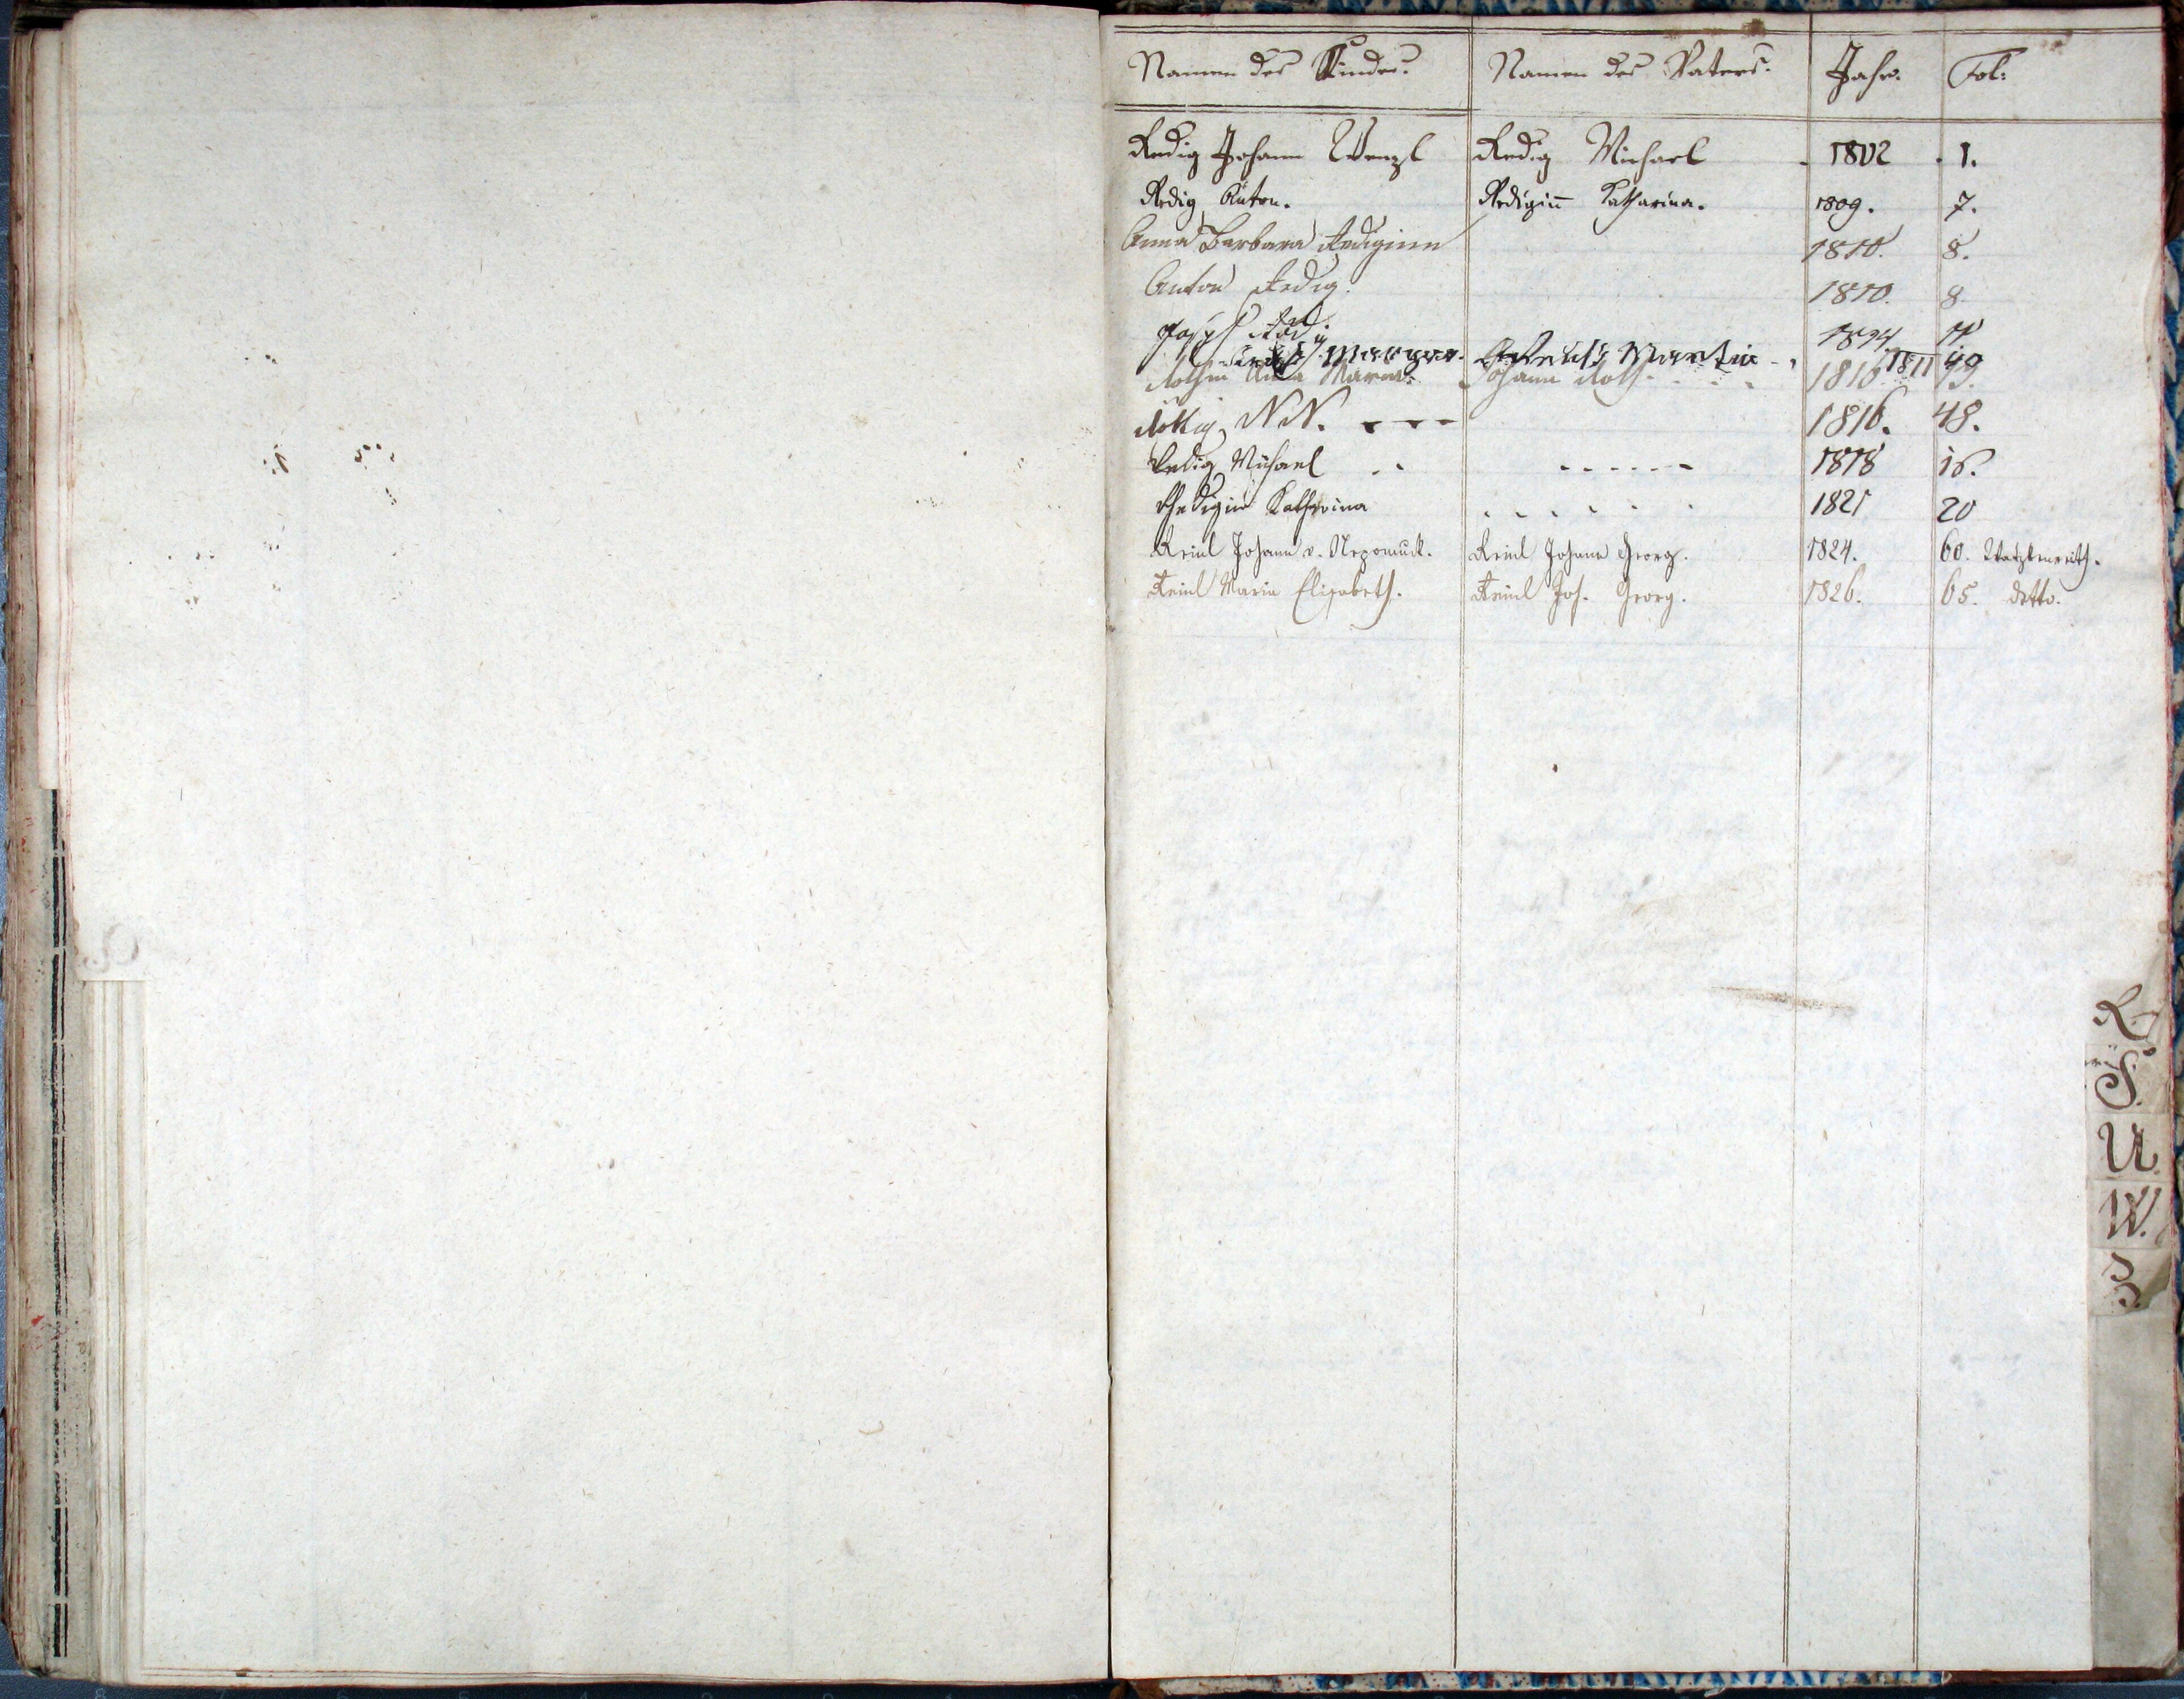 Namen des Kindes. Namen des Vaters. Jahr. Fol:
Redig Johann Wenzl Redig Michael 1802 1.
Redig Anton. Redigin̄ Katharina. 1809. 7.
Anna Barbara Rediginn 1810. 8.
Anton Redig. 1810. 8.
Joseph Redig 1814 11
Margar. Martin 1811 49
Rothin Anna Maria. Johann Roth 1816
N.N. 1816. 48.
Redig Michael 1818 16.
Rhedigin Katharina 1821 20
Reinl Johann v. Nepomuck. Reinl Johann Georg. 1824. 60. Watzkenreith.
Reinl Maria Elisabeth. Reinl Joh. Georg. 1826. 65. detto.
R.
S.
U.
W.
Z.